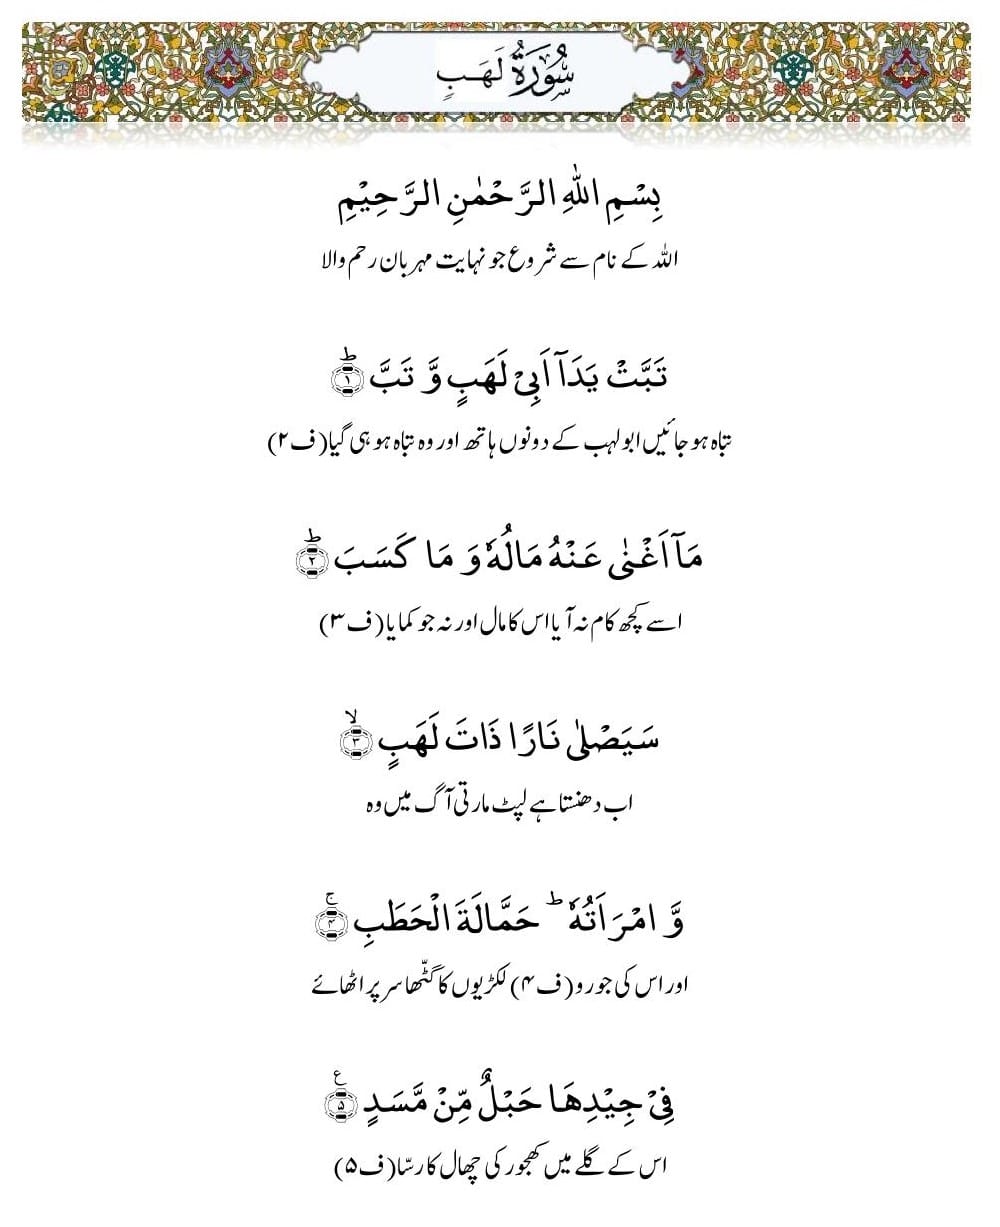 سُوْرَةُ لَهَبٍ
بِسْمِ اللّٰهِ الرَّحْمٰنِ الرَّحِیْمِ
اللہ کے نام سے شروع جو نہایت مہربان رحم والا
تَبَّتْ یَدَاۤ اَبِیْ لَهَبٍ وَّ تَبَّؕ(۱)
تباہ ہوجائیں ابولہب کے دونوں ہاتھ اور وہ تباہ ہو ہی گیا(ف۲)
مَاۤ اَغْنٰى عَنْهُ مَالُهٗ وَ مَا كَسَبَؕ(۲)
اسے کچھ کام نہ آیا اس کا مال اور نہ جو کمایا(ف۳)
سَیَصْلٰى نَارًا ذَاتَ لَهَبٍۙ(۳)
اب دھنستا ہے لپٹ مارتی آگ میں وہ
وَّ امْرَاَتُهٗؕ حَمَّالَةَ الْحَطَبِۚ(۴)
اور اس کی جورو(ف۴) لکڑیوں کا گٹّھا سر پر اٹھائے
فِیْ جِیْدِهَا حَبْلٌ مِّنْ مَّسَدٍ۠(۵)
اس کے گلے میں کھجور کی چھال کا رسّا(ف۵)